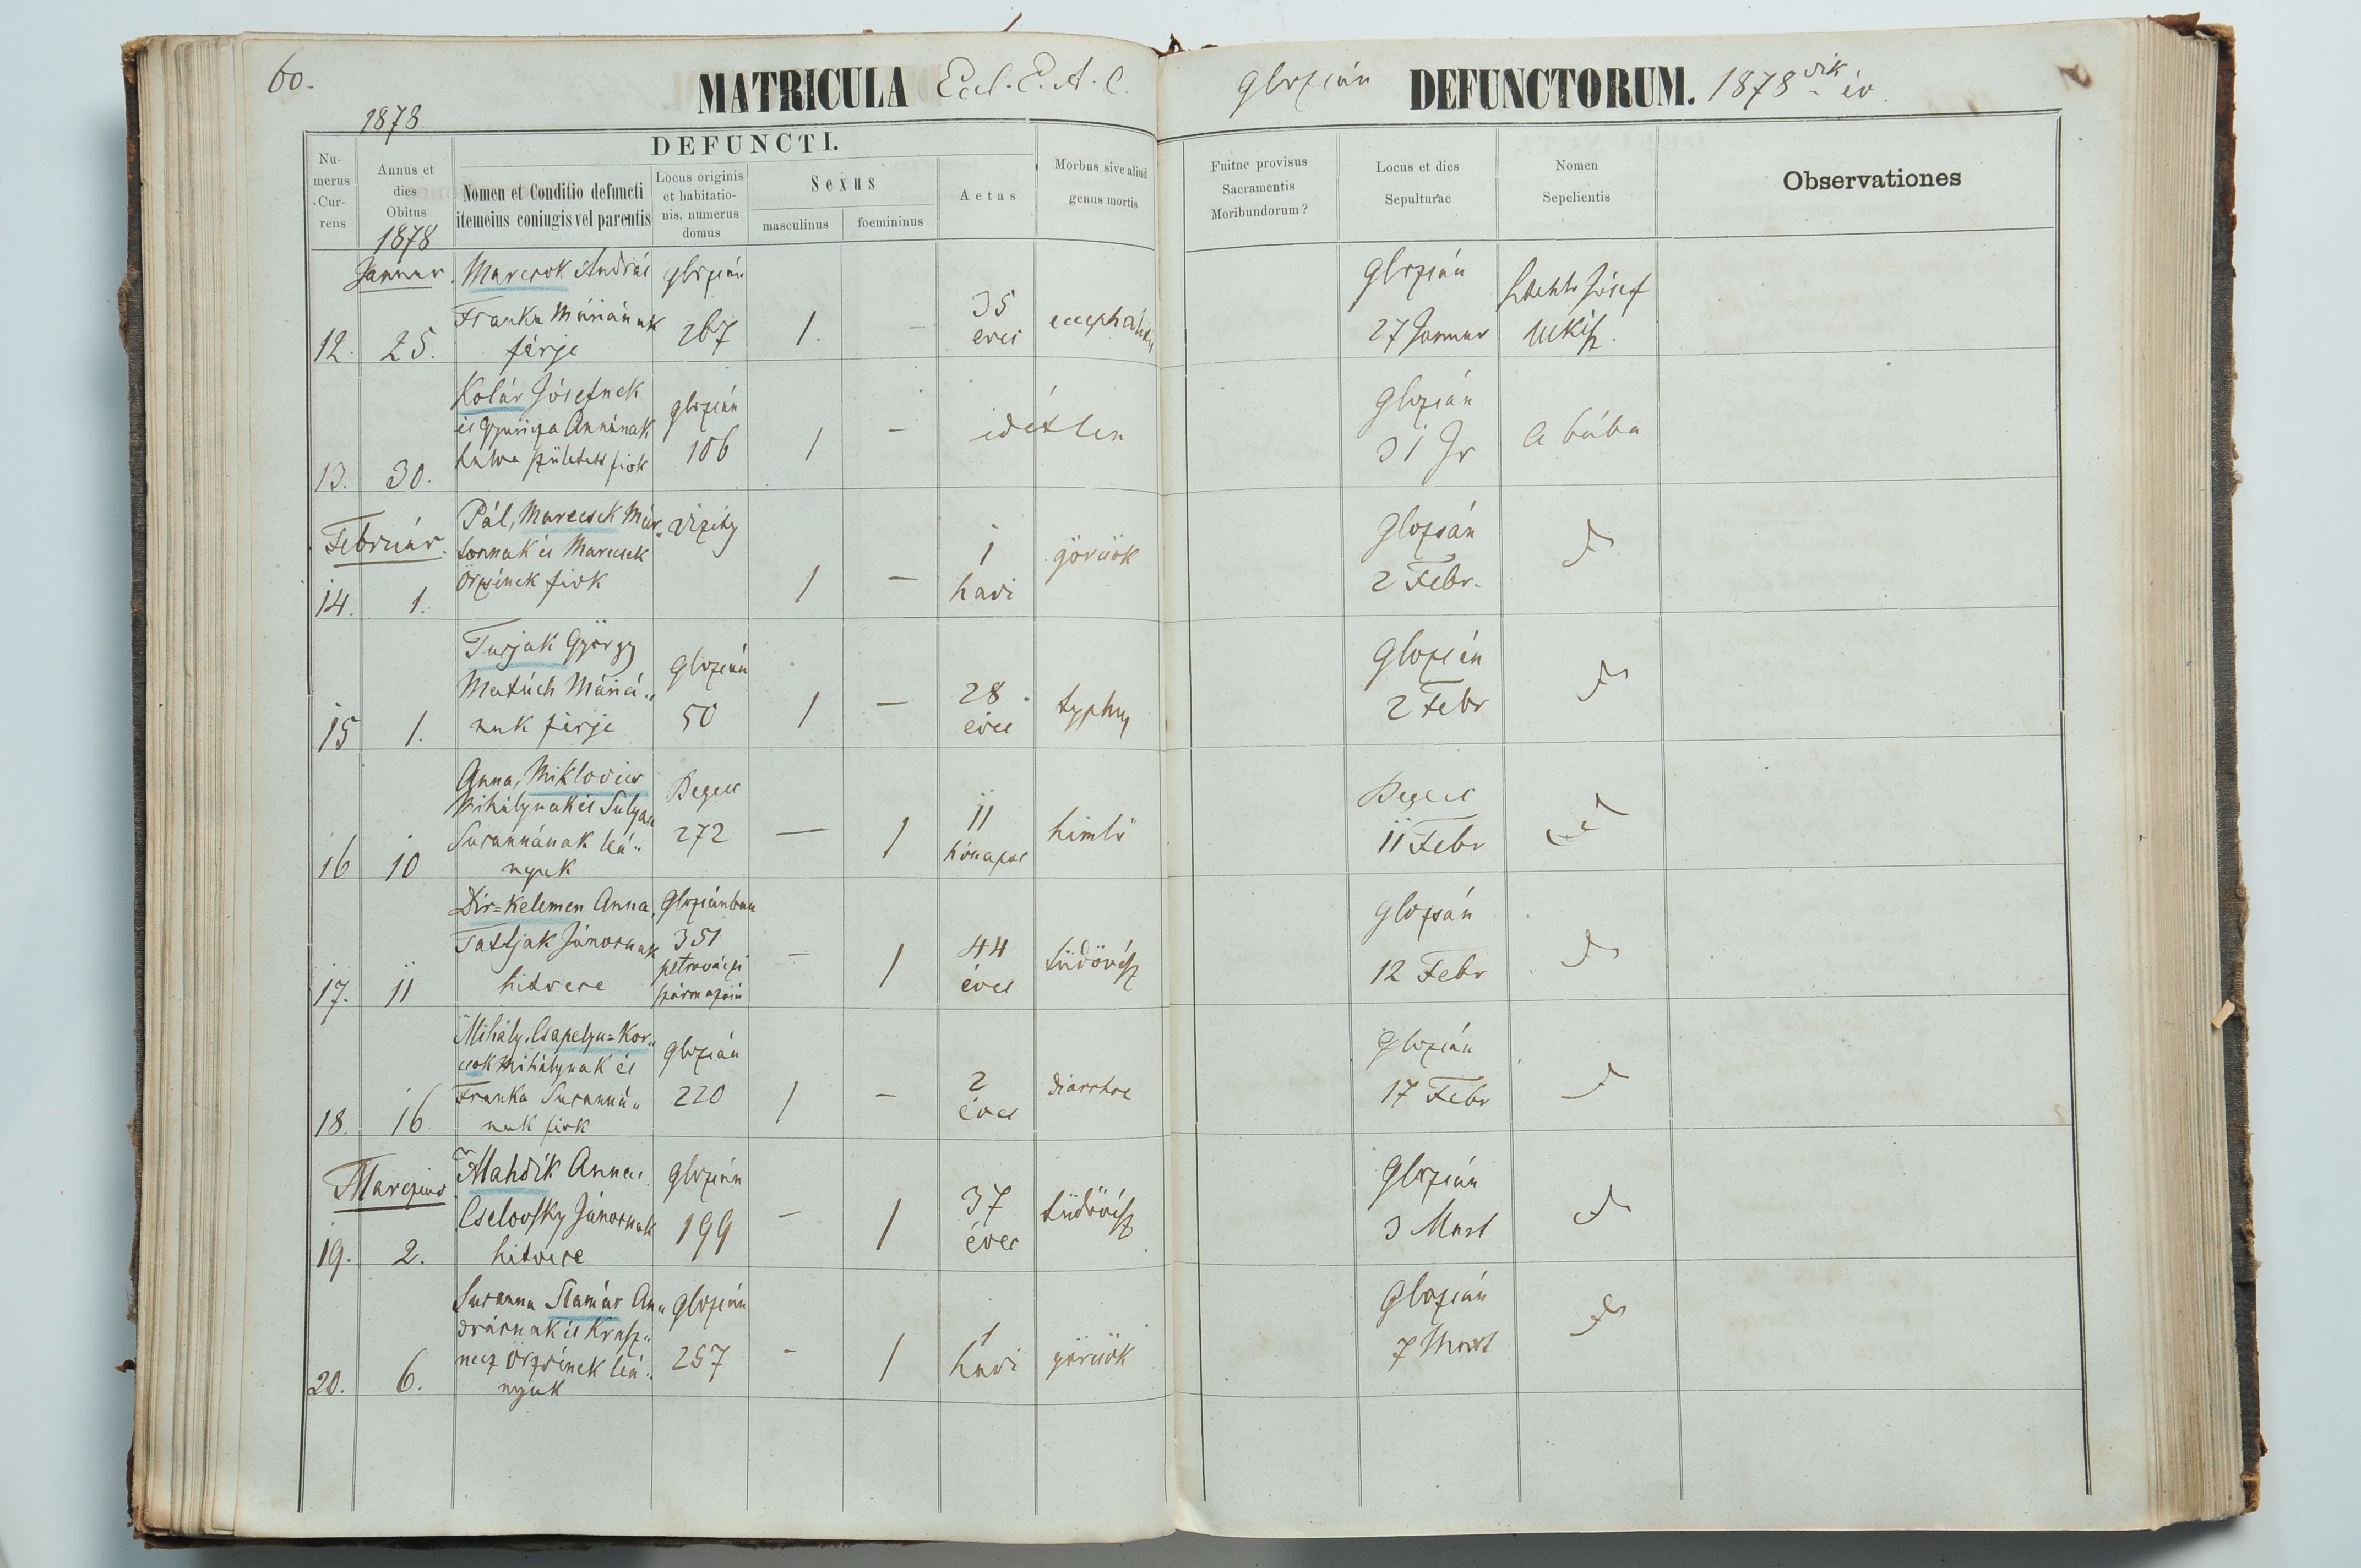 60.
MATRICULA Eccl. E. A. C.
Glozsán DEFUNCTORUM. 1878dik év.
1878
DEFUNCTI.
Nu-
merus
Cur-
rens
Annus et
dies
Obitus
1878
Nomen et Conditio defuncti
itemeius coniugis vel parentis
Locus originis
et habitatio-
nis, numerus
domus
Sexus
masculinus
foemininus
Aetas
Morbus sive aliud
genus mortis
Fuitne provisus
Sacramentis
Moribundorum?
Locus et dies
Sepulturae
Nomen
Sepelientis
Observationes
Januar.
12. 25.
Marcsok András
Franka Máriának
férje
Glozsán
267
1. –
35
éves
Glozsán
27 Januar
József
lelkész.
13. 30.
Kolár Józsefnek
és Annának
halva született fiok
Glozsán
106
1 –
idétlen
Glozsán
31 Jr
A bába
Február.
14. 1.
Pál, Marcsek Már„
tonnak és Marcsek
Örzsének fiok
Vizity
1 –
1
havi
görcsök
Glozsán
2 Febr.
15 1.
Turjak György
Matúch Máriá„
nak férje
Glozsán
50
1 –
28
éves
typhus
Glozsán
2 Febr
16 10
Anna, Miklovics
Mihálynak és Sulyan
Susannának leá„
nyok
Begecs
272
– 1
11
hónapos
himlő
Begecs
11 Febr
17. 11
Dir=Kelemen Anna,
Tattjak Jánosnak
hitvese
Glozsánban
351
petrováczi
származású
– 1
44
éves
tüdővész
Glozsán
12 Febr
18. 16
Mihály, Csapelya=Kor„
csok Mihálynak és
Franka Susanná„
nak fiok
Glozsán
220
1 –
2
éves
diarrhoe
Glozsán
17 Febr
Marczius
19. 2.
Mahdik Anna,
Cselovszky Jánosnak
hitvese
Glozsán
199
– 1
37
éves
tüdővész
Glozsán
3 Mart
20. 6.
Susanna Slamár An„
drásnak és Krasz„
necz Örzsének leá„
nyuk
Glozsán
257
– 1
1
havi
görcsök
Glozsán
7 Mart